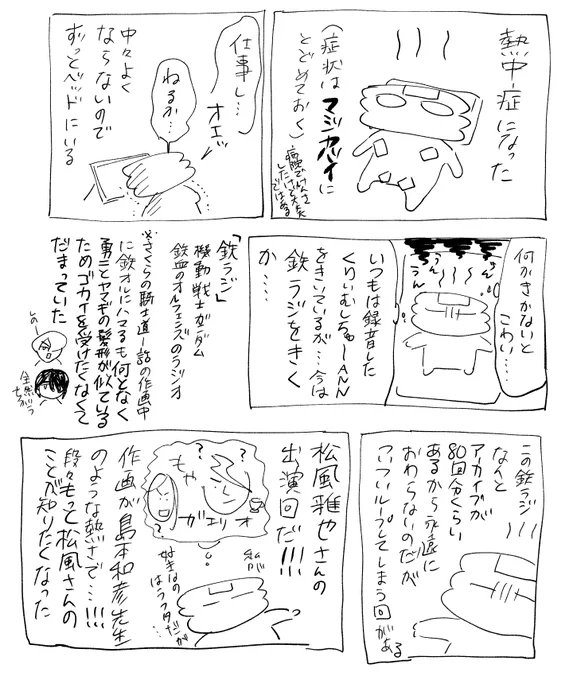 熱中症になった
(症状はマジカルバナナ
とどめておく)
仕事し…
オエッ
ねるか…
中々よく
ならないので
ずっとベッドにいる
何かきかないと
こわい…
うーん
うーん
いつもは録音した
くりぃむしちゅーANN
をきいているが…今は
鉄ラジをきく
か…
「鉄ラジ」
機動戦士ガンダム
鉄血のオルフェンズのラジオ
※さくらの騎士道一話の作画中
に鉄オルにハマるも何となく
勇斗とヤマギの髪形が似ている
ためゴカイを受けたくなくて
だまっていた
全然ちがう
この鉄ラジ
なんと
アーカイブが
80回分くらい
あるから永遠に
おわらないのだが
ついついループしてしまう回がある
松風雅也さんの
出演回だ!!!
?
?
?
もや
ガエリオ
私が
好きなの
はラフタだが…
作画が島本和彦先生
のような熱さで…!!!
段々もって松風さんの
ことが知りたくなった